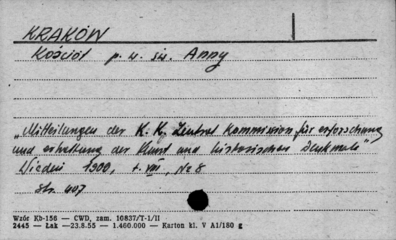 KRAKÓW
Kościół p. w. św. Anny
„Mitteilungen der K. K. Zentral Kommission für erforschung
und erhaltung der Kunst und historischen Denkmale"
Wiedeń 1900, t. VIII, No 8
str. 407
Wzór Kb-156 — CWD, zam. 10837/T-1/II
2445 — Łak —23.8.55 — 1.460.000 — Karton kl. V A1/180 g